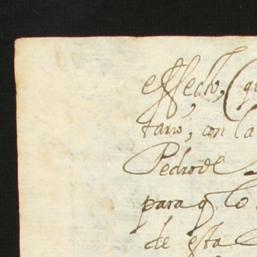 effecto, (q
tario, con la
Pedro de
para q lo
de esta